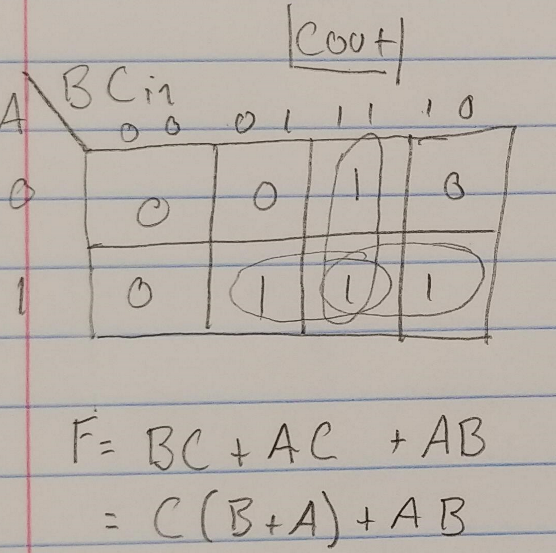 Cout
A B Cin
00 01 11 10
0 0 0 1 0
1 0 1 1 1
F = BC + AC + AB
= C(B+A) + AB